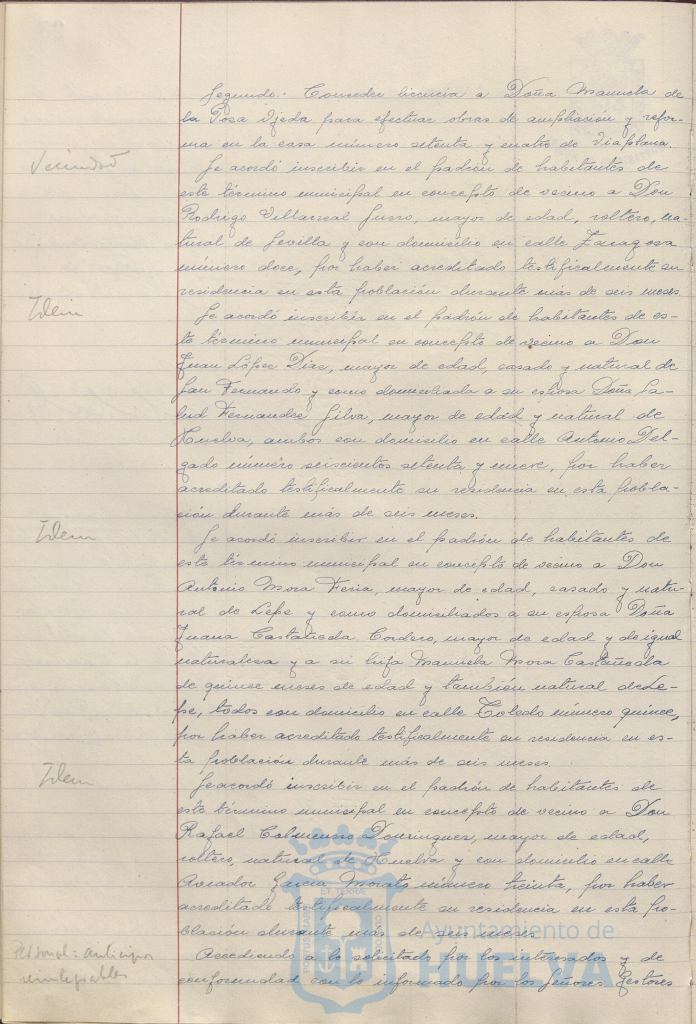 Segundo.- Conceder licencia a Doña Manuela de
la Posa Ojeda para efectuar obras de ampliación y refor-
ma en la casa número setenta y cuatro de Viaplana.
Vecindad
Se acordó inscribir en el padrón de habitantes de
este término municipal en concepto de vecino a Don
Rodrigo Villarreal, mayor de edad, soltero, na-
tural de Sevilla y con domicilio en calle Zaragoza
número doce, por haber acreditado testificalmente su
residencia en esta población durante más de seis meses.
Idem
Se acordó inscribir en el padrón de habitantes de es-
te término municipal en concepto de vecino a Don
Juan López Diaz, mayor de edad, casado y natural de
San Fernando y como domiciliada a su esposa Doña Sa-
lud Fernandez Silva, mayor de edad y natural de
Huelva, ambos con domicilio en calle Antonio Del-
gado número seiscientos setenta y nueve, por haber
acreditado testificalmente su residencia en esta pobla-
ción durante más de seis meses.
Idem
Se acordó inscribir en el padrón de habitantes de
este término municipal en concepto de vecino a Don
Antonio Mora Feria, mayor de edad, casado y natu-
ral de Lepe y como domiciliados a su esposa Doña
Juana Castañeda Cordero, mayor de edad y de igual
naturaleza y a su hija Manuela Mora Castañeda
de quince meses de edad y también natural de Le-
pe, todos con domicilio en calle Toledo número quince,
por haber acreditado testificalmente su residencia en es-
ta población durante más de seis meses.
Idem
Se acordó inscribir en el padrón de habitantes de
este término municipal en concepto de vecino a Don
Rafael Colmenero Dominguez, mayor de edad,
soltero, natural de Huelva y con domicilio en calle
Aviador Garcia Morato número treinta, por haber
acreditado testificalmente su residencia en esta po-
blación durante más de seis meses
Personal: anticipos
reintegrables
Accediendo a lo solicitado por los interesados y de
conformidad con lo informado por los Señores Gestores
ET. TERRÆ
Ayuntamiento de
HUELVA